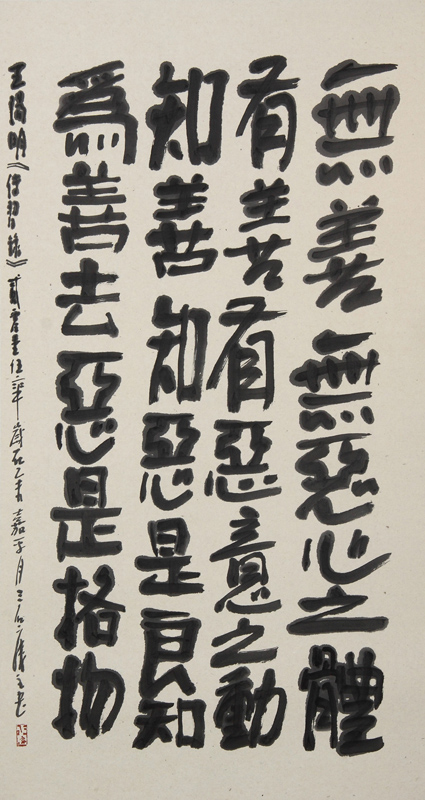 無善無惡心之體
有善有惡意之動
知善知惡是良知
爲善去惡是格物
王陽明《傳習錄》貳零壹伍年歲在乙未嘉平月三石